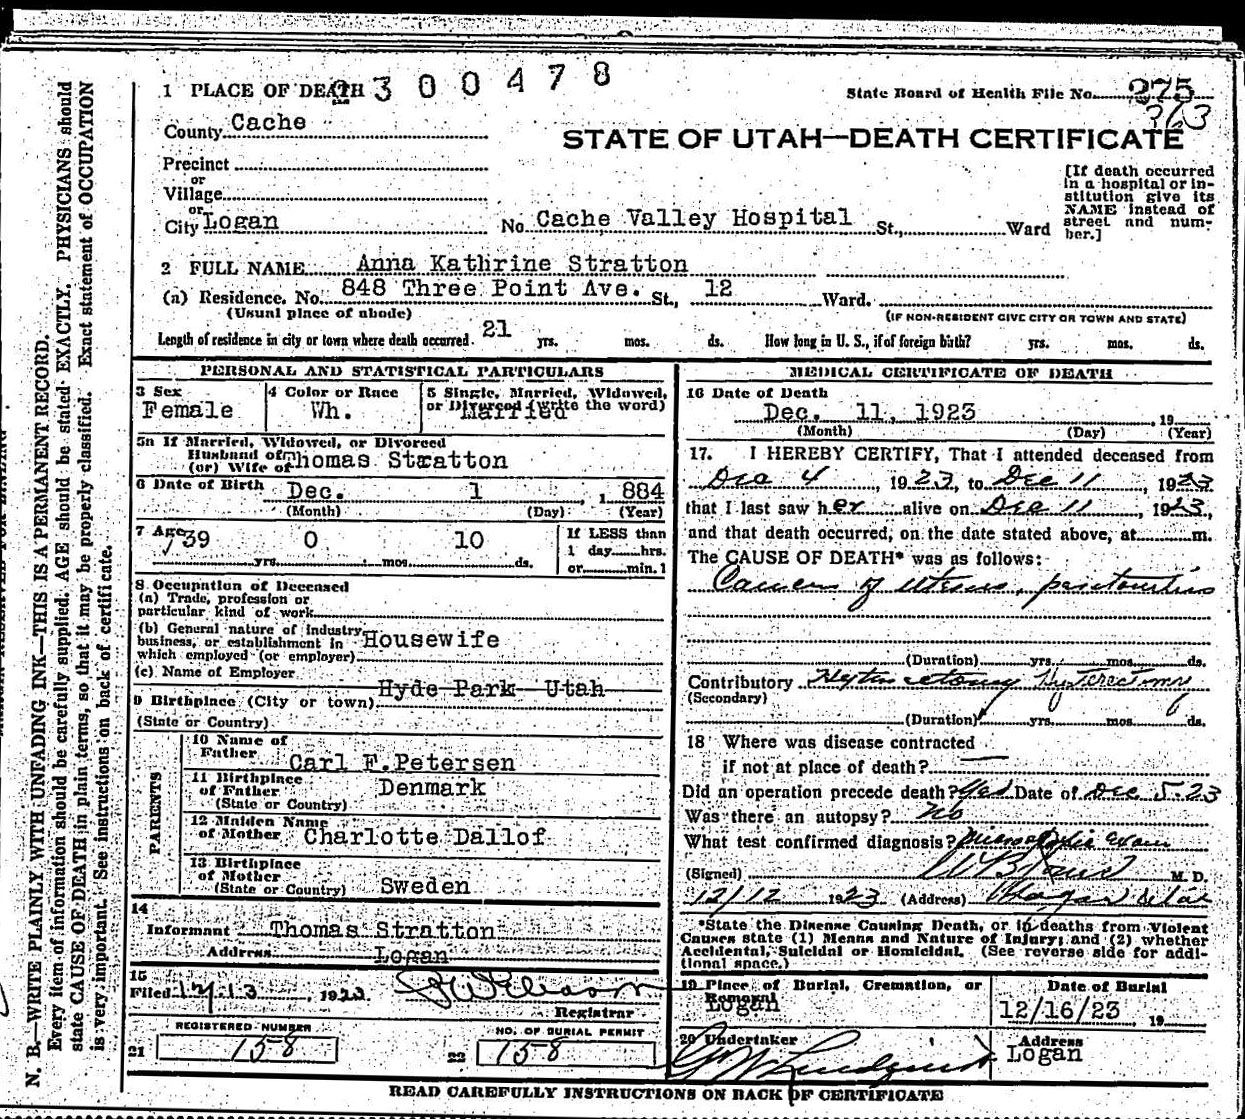 1 PLACE OF DEATH 2300478
State Board of Health File No. 275
363
County Cache
STATE OF UTAH—DEATH CERTIFICATE
Precinct
or
Village
or
City Logan No. Cache Valley Hospital St., Ward
[If death occurred
in a hospital or in-
stitution give its
NAME instead of
street and num-
ber.]
2 FULL NAME Anna Kathrine Stratton
(a) Residence. No. 848 Three Point Ave. St., 12 Ward.
(Usual place of abode) (IF NON-RESIDENT GIVE CITY OR TOWN AND STATE)
Length of residence in city or town where death occurred. 21 yrs. mos. ds. How long in U. S., if of foreign birth? yrs. mos. ds.
PERSONAL AND STATISTICAL PARTICULARS
3 Sex
Female
4 Color or Race
Wh.
5 Single, Married, Widowed,
or Divorced (write the word)
Married
5a If Married, Widowed, or Divorced
Husband of
(or) Wife of Thomas Stratton
6 Date of Birth Dec. 1 , 1884
(Month) (Day) (Year)
7 Age 39 yrs. 0 mos. 10 ds.
If LESS than
1 day hrs.
or min.
8 Occupation of Deceased
(a) Trade, profession or
particular kind of work
(b) General nature of industry,
business, or establishment in
which employed (or employer) Housewife
(c) Name of Employer
9 Birthplace (City or town) Hyde Park Utah
(State or Country)
PARENTS
10 Name of
Father Carl F.Petersen
11 Birthplace
of Father Denmark
(State or Country)
12 Maiden Name
of Mother Charlotte Dallof
13 Birthplace
of Mother
(State or Country) Sweden
14
Informant Thomas Stratton
Address Logan
15
Filed 12/13, 1923
Registrar
REGISTERED NUMBER
21 158
NO. OF BURIAL PERMIT
22 158
MEDICAL CERTIFICATE OF DEATH
16 Date of Death
Dec. 11, 1923 , 19
(Month) (Day) (Year)
17. I HEREBY CERTIFY, That I attended deceased from
Dec 4, 1923, to Dec 11, 1923
that I last saw her alive on Dec 11, 1923,
and that death occurred, on the date stated above, at m.
The CAUSE OF DEATH* was as follows:
Cancer of Uterus, peritonitis
(Duration) yrs. mos. ds.
Contributory Hysterectomy Hysterectomy
(Secondary)
(Duration) yrs. mos. ds.
18 Where was disease contracted
if not at place of death?
Did an operation precede death? Yes Date of Dec 5 23
Was there an autopsy? No
What test confirmed diagnosis? Microscopic exam
(Signed) M. D.
12/12 1923 (Address) Logan Utah
*State the Disease Causing Death, or in deaths from Violent
Causes state (1) Means and Nature of Injury; and (2) whether
Accidental, Suicidal or Homicidal. (See reverse side for addi-
tional space.)
19 Place of Burial, Cremation, or
Removal
Logan
Date of Burial
12/16/23 19
20 Undertaker
Address
Logan
READ CAREFULLY INSTRUCTIONS ON BACK OF CERTIFICATE
N. B.—WRITE PLAINLY WITH UNFADING INK—THIS IS A PERMANENT RECORD.
Every item of information should be carefully supplied. AGE should be stated EXACTLY. PHYSICIANS should
state CAUSE OF DEATH in plain terms, so that it may be properly classified. Exact statement of OCCUPATION
is very important. See instructions on back of certificate.